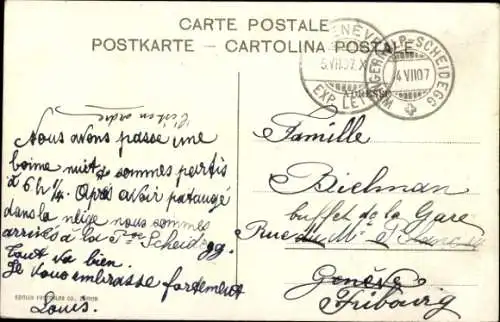 CARTE POSTALE
POSTKARTE – CARTOLINA POSTALE
GENÈVE
5.VII.07.X
EXP. LET
WENGERNALP-SCHEIDEGG
4 VII 07
C'est en ordre
Nous avons passé une
bonne nuit et sommes partis
à 6 h ¼. Après avoir pataugé
dans la neige nous sommes
arrivés à la Pte Scheidegg.
Tout va bien.
Je vous embrasse fortement
Louis.
Famille
Bielman
buffet de la Gare
Rue du Mt Blanc
Genève
Fribourg